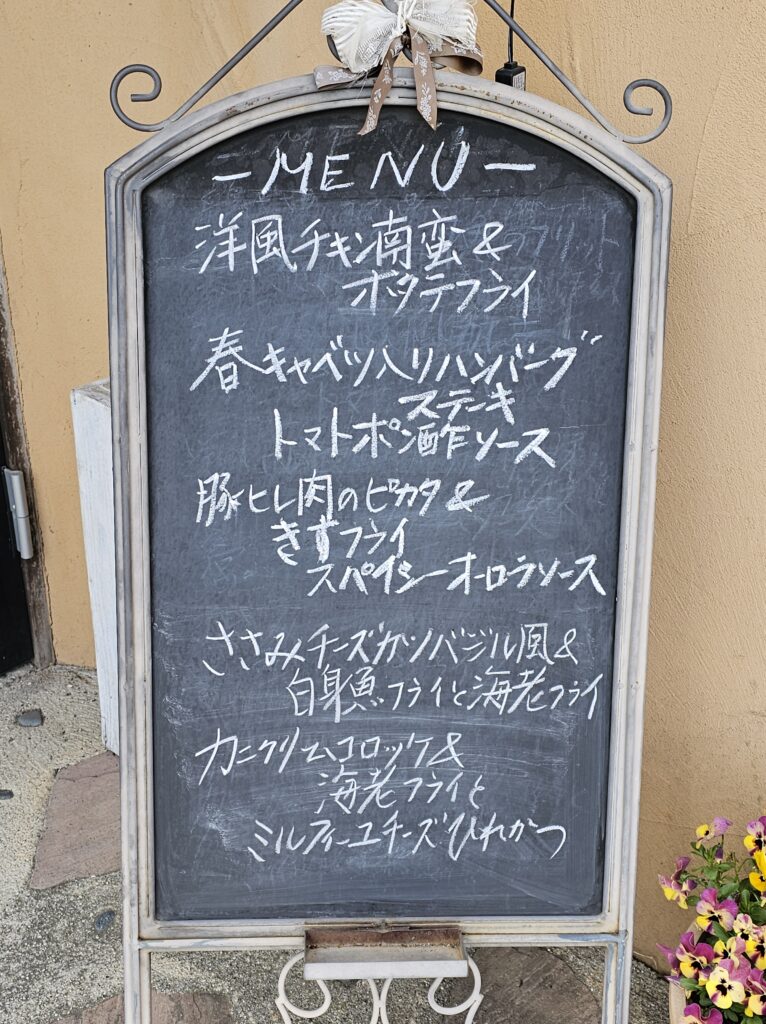 -MENU-
洋風チキン南蛮&
ホタテフライ
春キャベツ入りハンバーグ
ステーキ
トマトポン酢ソース
豚ヒレ肉のピカタ&
きすフライ
スパイシーオーロラソース
ささみチーズカツバジル風&
白身魚フライと海老フライ
カニクリームコロッケ&
海老フライと
ミルフィーユチーズひれかつ